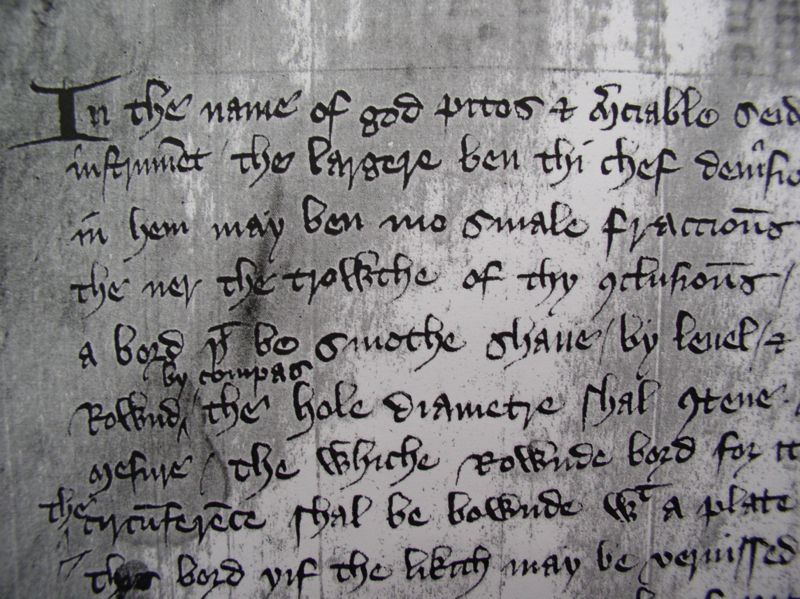 In the name of god pitos & m̃ciable seid
instrumẽt / the largere ben thi chef deuisio
in hem may ben mo smale fracciouns
the ner the trowthe of thy 9clusiouns /
a bord þt be smothe shaue / by leuel / &
by compas
Rownd / the hole diametre shal 9tene
mesure / the whiche Rownde bord for it
the circũferẽce shal be bownde wt a plate
this bord yif the likith may be vernissed